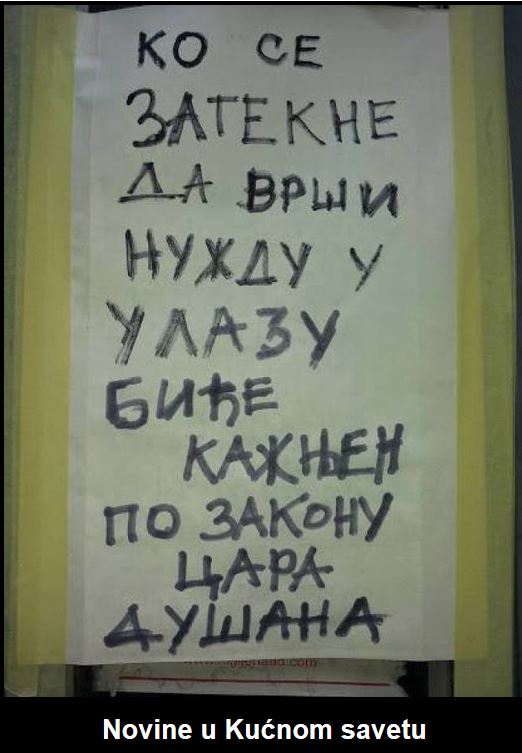 КО СЕ
ЗАТЕКНЕ
ДА ВРШИ
НУЖДУ У
УЛАЗУ
БИЂЕ
КАЖЊЕН
ПО ЗАКОНУ
ЦАРА
ДУШАНА
Novine u Kućnom savetu